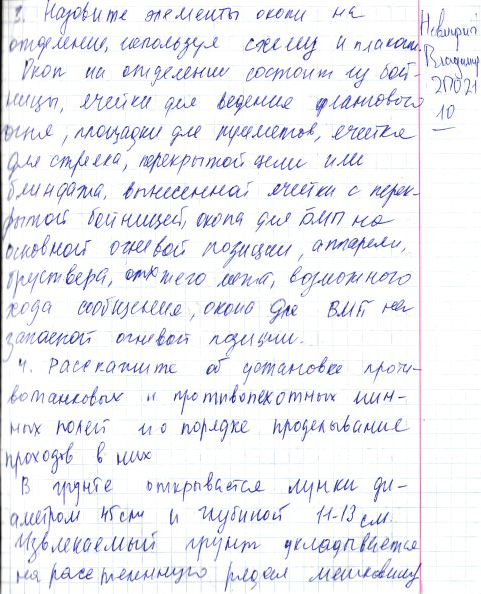 3. Назовите элементы окопа на
отделение, используя схему и плакат.
Окоп на отделение состоит из бой-
ницы, ячейки для ведения флангового
огня, площадки для пулеметов, ячейка
для стрелка, перекрытой щели или
блиндажа, вынесенной ячейки с перек-
рытой бойницей, окопа для БМП на
основной огневой позиции, аппарели,
бруствера, отхожего места, возможного
хода сообщения, окопа для БМП на
запасной огневой позиции.
4. Расскажите об установке проти-
вотанковых и противопехотных мин-
ных полей и о порядке проделывание
проходов в них
В грунте открывается лунки ди-
аметром 45см и глубиной 11-13 см.
Извлекаемый грунт укладывается
на расстеленную рядом мешковину
Владимир
2П021
10